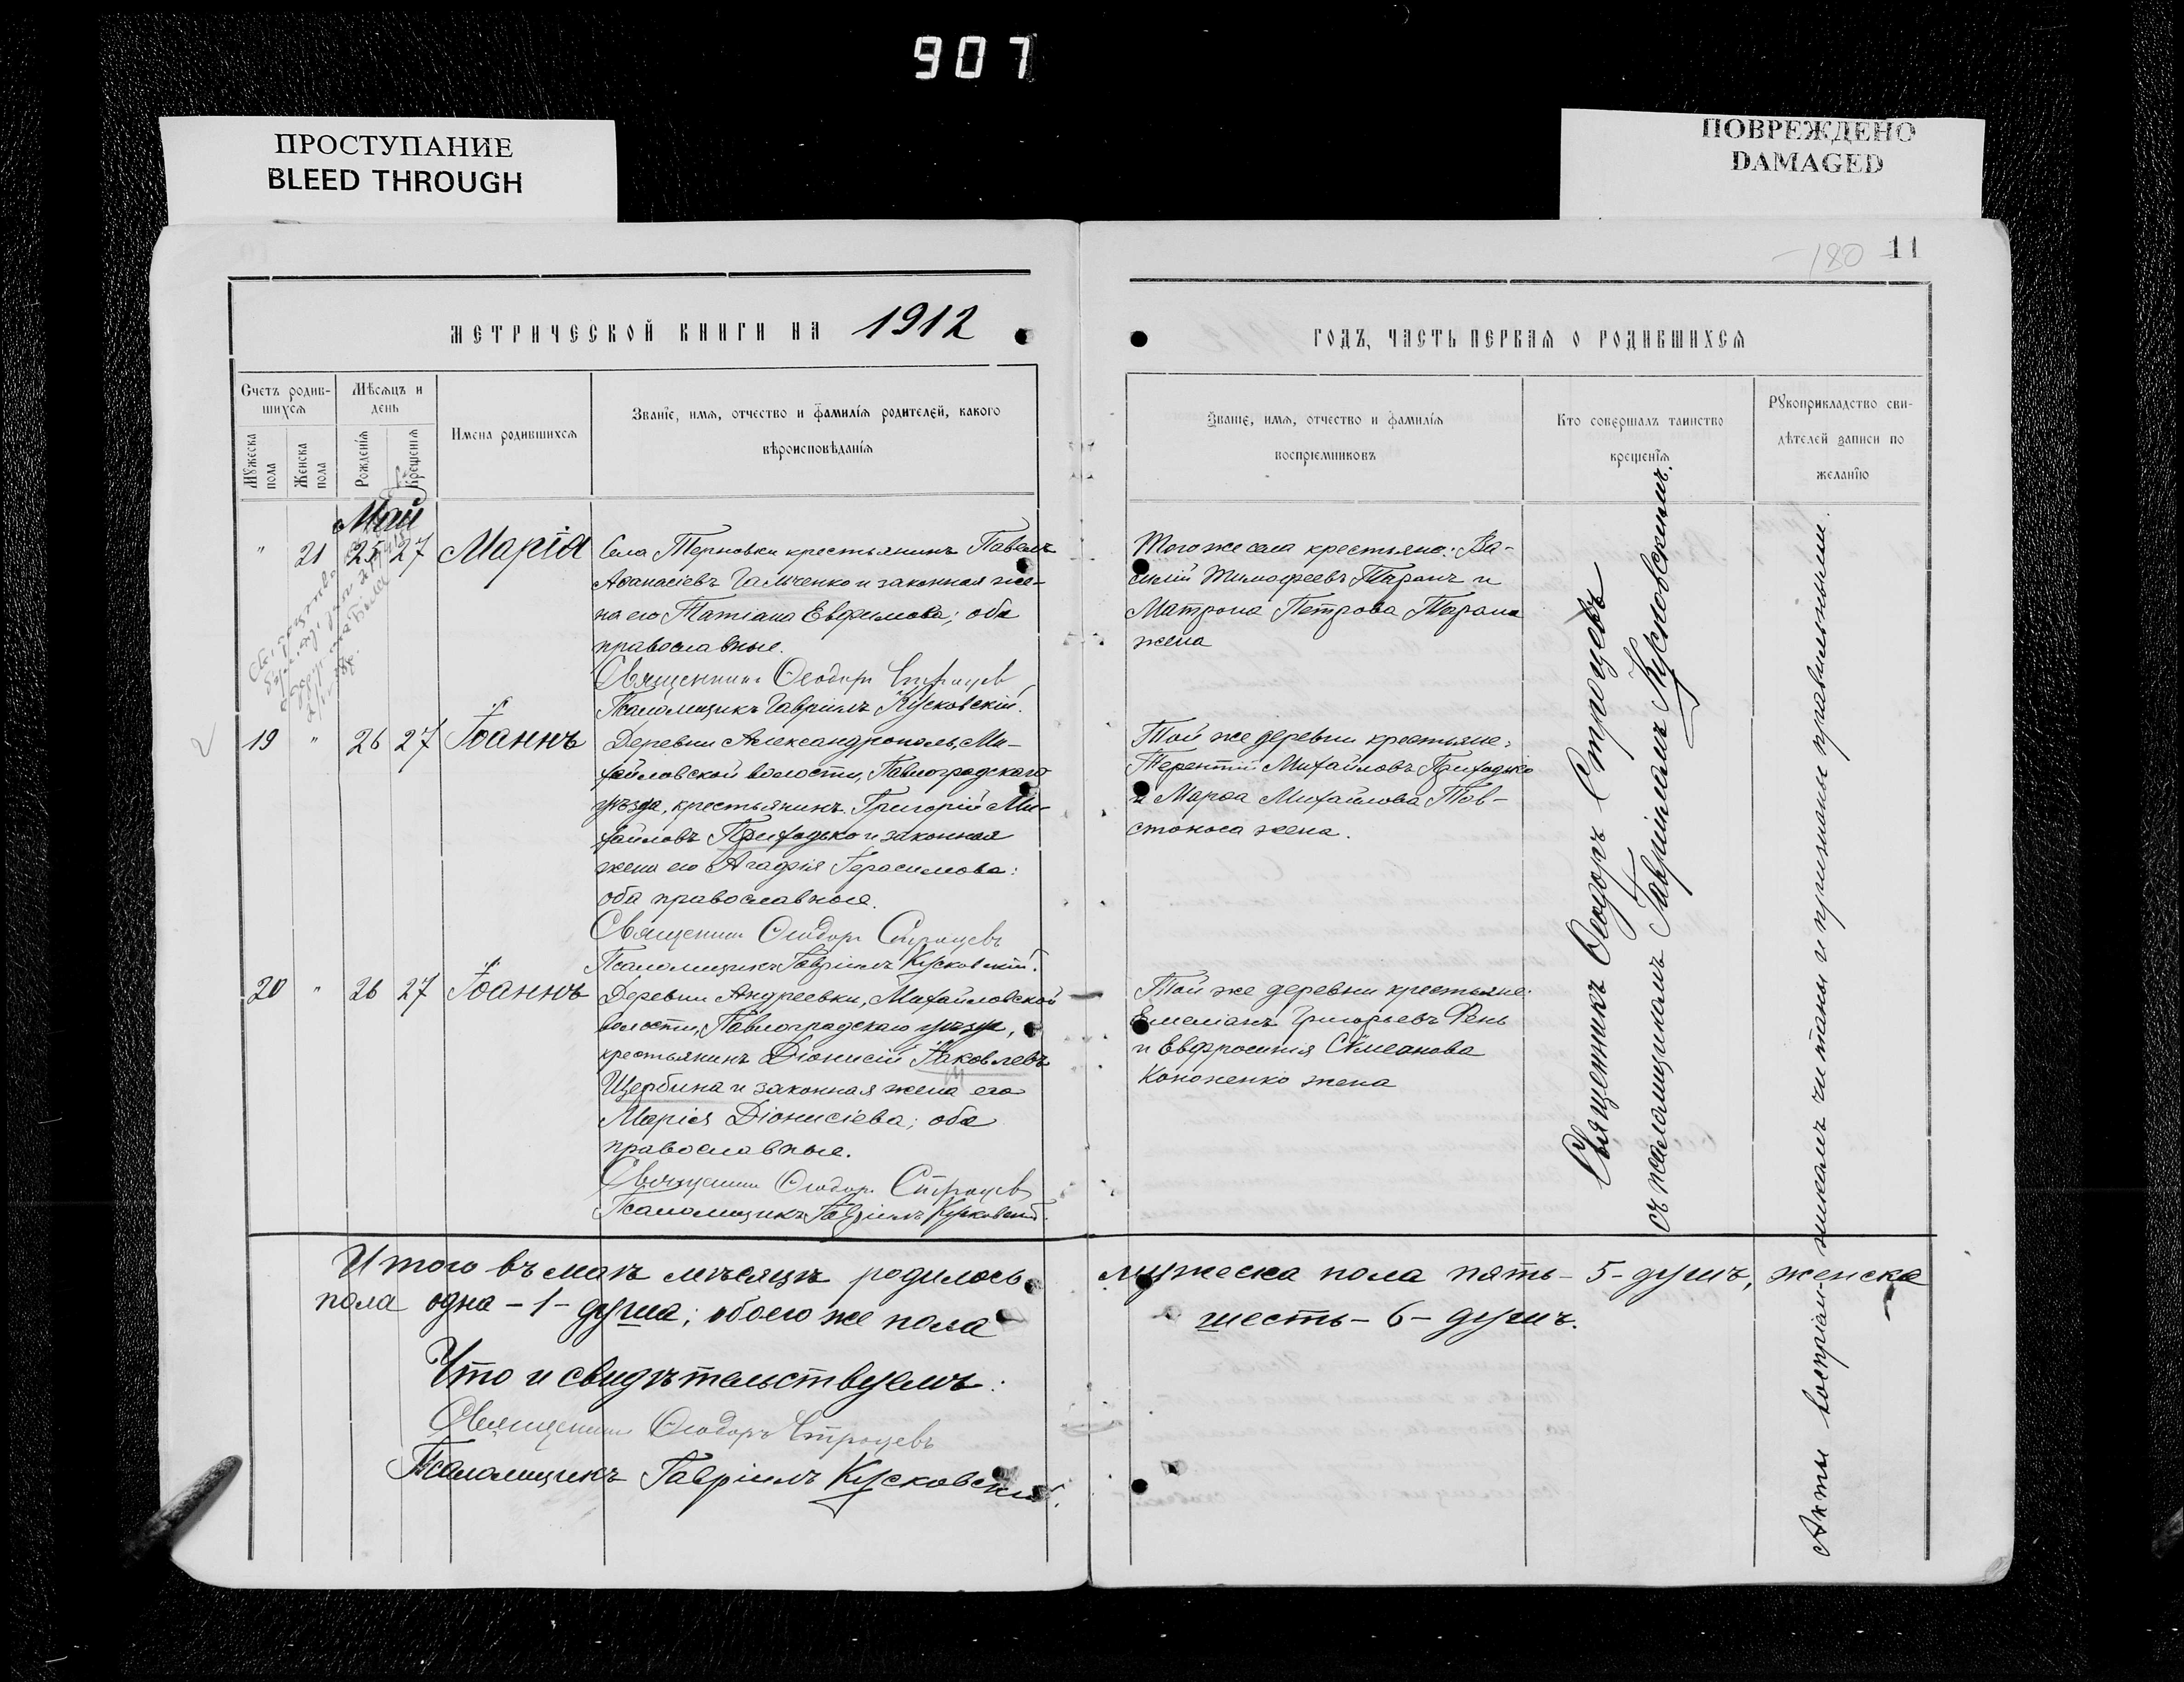 907
ПРОСТУПАНИЕ
BLEED THROUGH
ПОВРЕЖДЕНО
DAMAGED
180 11
МЕТРИЧЕСКОЙ КНИГИ НА 1912
ГОДЪ, ЧАСТЬ ПЕРВАЯ О РОДИВШИХСЯ
Счетъ родив-
шихся
Мѣсяцъ и
день
Мужеска
пола
Женска
пола
Рожденія
Крещенія
Имена родившихся
Званіе, имя, отчество и фамилія родителей, какого
вѣроисповѣданія
Званіе, имя, отчество и фамилія
воспріемниковъ
Кто совершалъ таинство
крещенія
Рукоприкладство сви-
дѣтелей записи по
желанію
Май
" 21 25 27 Марія
Села Терновки крестьянинъ Павелъ
Аѳанасіевъ Гальченко и законная же-
на его Татіана Евфимова; оба
православные.
Священникъ Ѳеодоръ Строцев
Псаломщикъ Гавріилъ Кусковскій.
Того же села крестьяне: Ва-
силій Тимофеевъ Таранъ и
Матрона Петрова Тарана
жена
19 " 26 27 Іоаннъ
Деревни Александрополь, Ми-
хайловской волости, Павлоградскаго
уѣзда, крестьянинъ Григорій Ми-
хайловъ Приходько и законная
жена его Агафія Герасимова:
оба православные.
Священникъ Ѳеодоръ Строцевъ
Псаломщикъ Гавріилъ Кусковскій.
Той же деревни крестьяне:
Терентій Михайловъ Приходько
и Марѳа Михайлова Тов-
стоноса жена.
20 " 26 27 Іоаннъ
Деревни Андреевки, Михайловской
волости, Павлоградскаго уѣзда,
крестьянинъ Діонисій Іаковлевъ
Щербина и законная жена его
Марія Діонисіева; оба
православные.
Священникъ Ѳеодоръ Строцев
Псаломщикъ Гавріилъ Кусковскій.
Той же деревни крестьяне:
Емеліанъ Григорьевъ Рень
и Евфросинія Симеонова
Кононенко жена
Священникъ Ѳеодоръ Строцевъ
съ псаломщикомъ Гавріиломъ Кусковскимъ.
Акты воспріемникамъ читаны и признаны правильными.
Итого въ маѣ мѣсяцѣ родилось мужеска пола пять - 5 - душъ, женска
пола одна - 1 - душа; обоего же пола шесть - 6 - душъ.
Что и свидѣтельствуемъ:
Священникъ Ѳеодоръ Строцевъ
Псаломщикъ Гавріилъ Кусковскій.